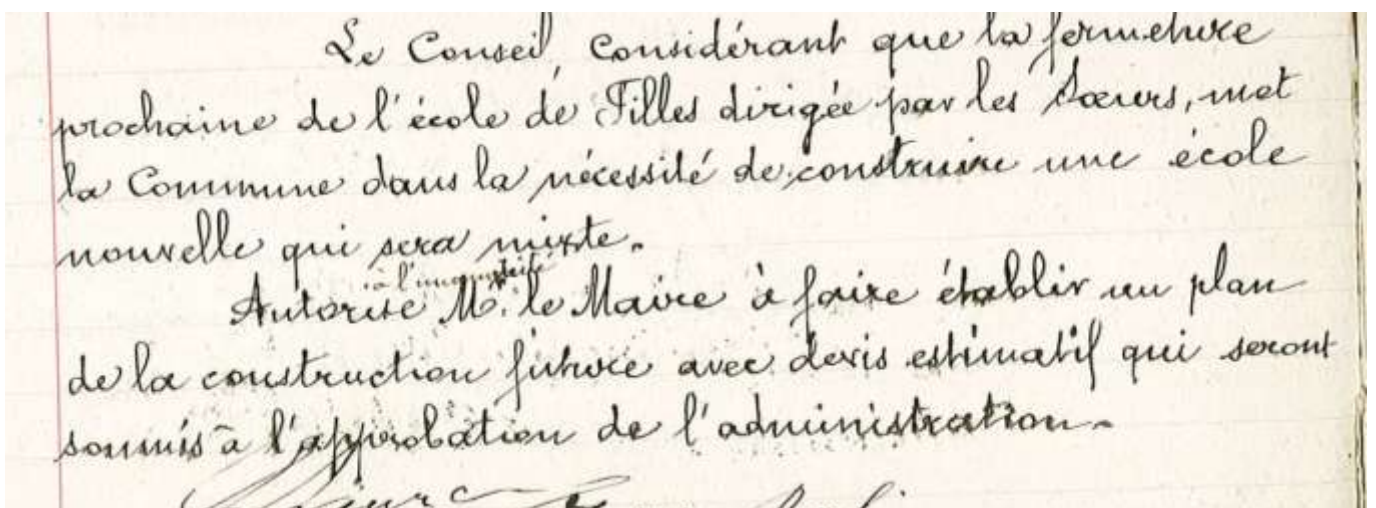 Le Conseil, considérant que la fermeture
prochaine de l'école de Filles dirigée par les Sœurs, met
la Commune dans la nécessité de construire une école
nouvelle qui sera mixte.
à l'unanimité
Autorise M. le Maire à faire établir un plan
de la construction future avec devis estimatif qui seront
soumis à l'approbation de l'administration.